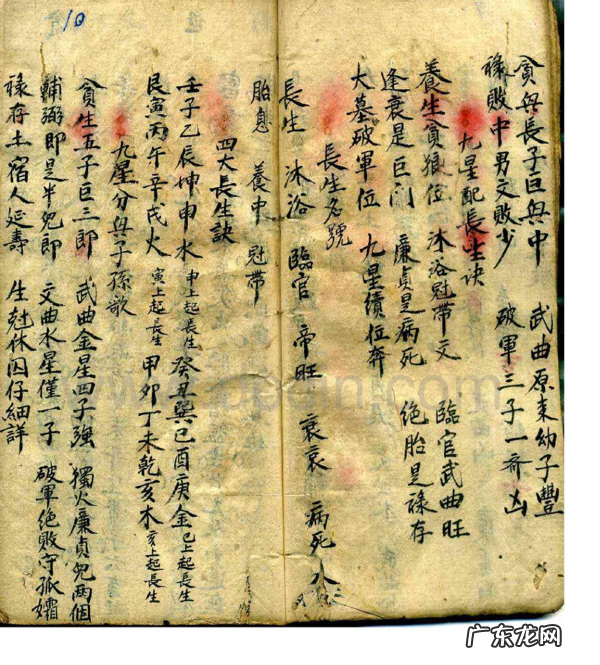 貪毋長子巨與中　武曲原來幼子豐
祿敗中男文敗少　破軍三子一齊凶
九星配長生訣
養生貪狼位　沐浴冠帶文　臨官武曲旺
逢衰是巨门　廉貞是病死　絶胎是祿存
大墓破軍位　九星续位奔
長生名號
長生　沐浴　臨官　帝旺　衰衰　病死
胎息　養中　冠帶
四大長生訣
壬子乙辰坤申水　申上起長生　癸丑巽巳酉庚金　巳上起長生
艮寅丙午辛戌火　寅上起長生　甲卯丁未乾亥木　亥上起長生
九星分與子孫歌
貪生五子巨三郎　武曲金星四子強　獨火廉貞兒兩個
輔弼即是半兒郎　文曲水星僅一子　破軍絶敗守孤孀
祿存土宿人延壽　生尅休囚仔細詳
10
广东龙网